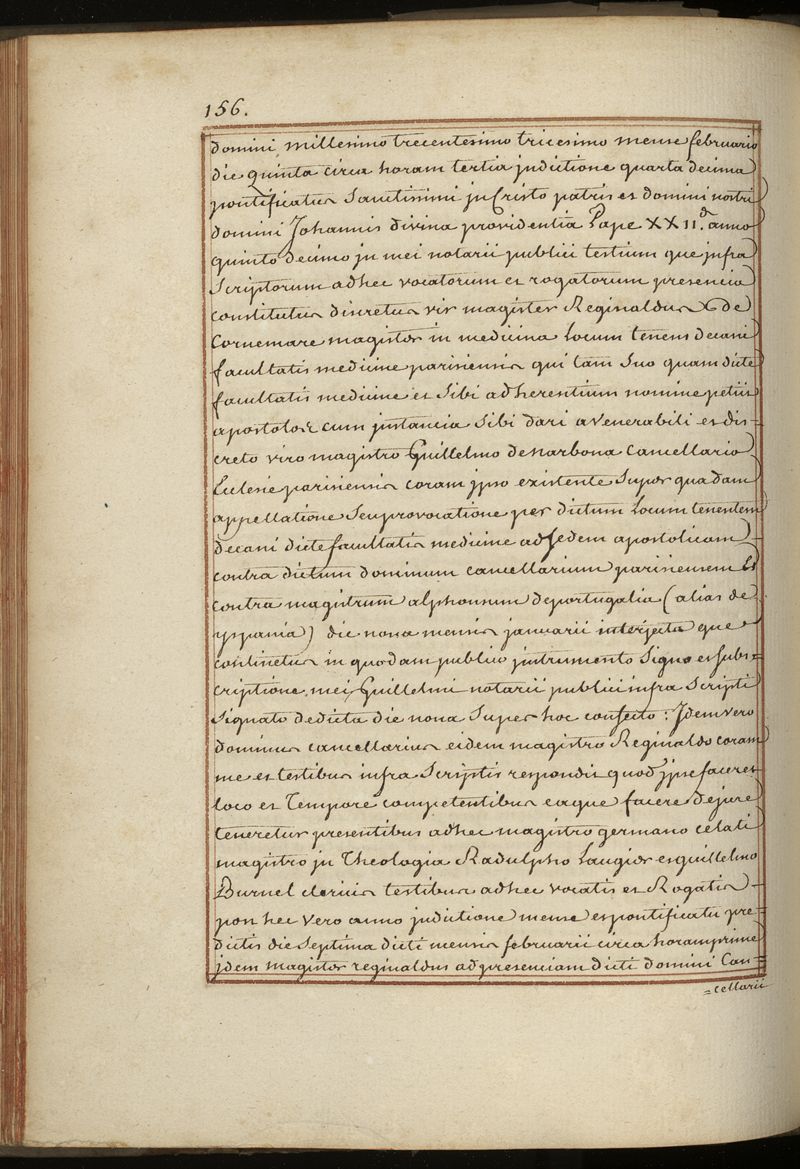 156.
domini millesimo trecentesimo tricesimo mense februario
die quinta circa horam tertia jndictione quarta decima
pontificatus Sanctissimi jn Cristo patris et domini nostri
domini Johannis divina providentia Pape XXII.d anno
quinto decimo jn mei notarii publici testium que jnfra
Scriptorum adhec vocatorum et rogatorum presencia
constitutus discretus vir magister Reginaldus de
Cornemare magister in medicina Locum tenens decani
facultatis medicine parisiensis qui tam Suo quam dicte
facultatis medicine et Sibi adherentium nomine petiit
apostolos cum jnstancia Sibi dari a Venerabili et dis-
creto viro magistro Guillelmo de Narbona Cancellario
Eclesie parisiensis coram jpso existente Super quadam
appellatione Seu provocatione per dictum Locum tenentem
decani dicte facultatis medicine ad Sedem apostolicam
contra dictum dominum cancellarium parisiensem Et
contra magistrum alphonsum de portugalia (alias de
yspania) die nona mensis januarii interjecta que
continetur in quodam publico jnstrumento Signo et Subs-
criptione mei Guillelmi notarii publici infra Scripti
Signato dedicta die nona Super hoc confecto: Jdem vero
dominus cancellarius eidem magistro Reginaldo coram
me et testibus infra Scriptis respondit quod jpse faceret
loco et Tempore competentibus eaque facere de jure
teneretur presentibus adhec magistro germano celati
magistro jn Theologia Radulpho Laugier et guillelmo
Burnel clericis testibus adhec vocatis et Rogatis
post hec vero anno jndictione mense et pontificatu pre-
dictis die Septima dicti mensis februarii circa horam prime
jdem magister reginaldus ad presenciam dicti domini Can-
=cellarii